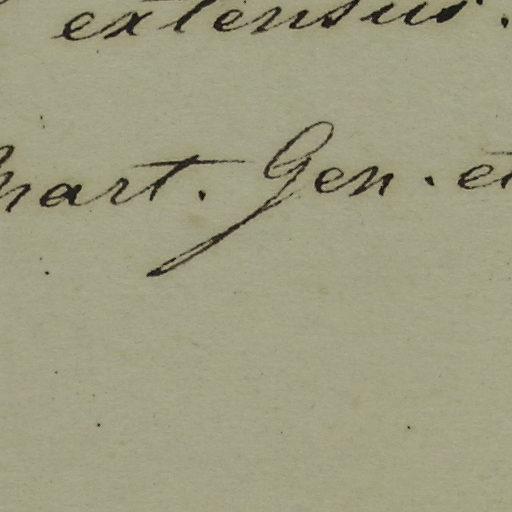 extensus.
Mart. Gen. et